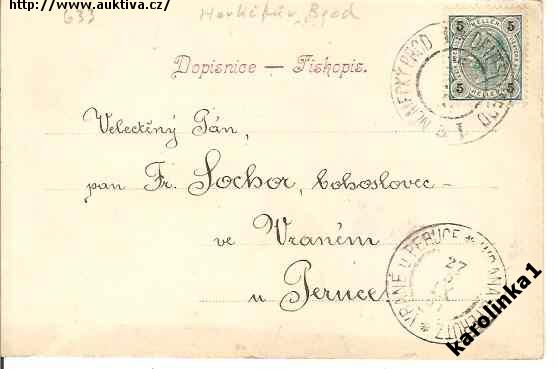 http://www.auktiva.cz/
633 Havlíčkův Brod
5 5
5 HELLER 5
Dopisnice — Tiskopis.
NĚMECKÝ BROD
Velectěný Pán,
pan Fr. Sochor, bohoslovec -
ve Vraném
u Peruce
VRANÉ U PERUCE * WRANA
27
karolinka1